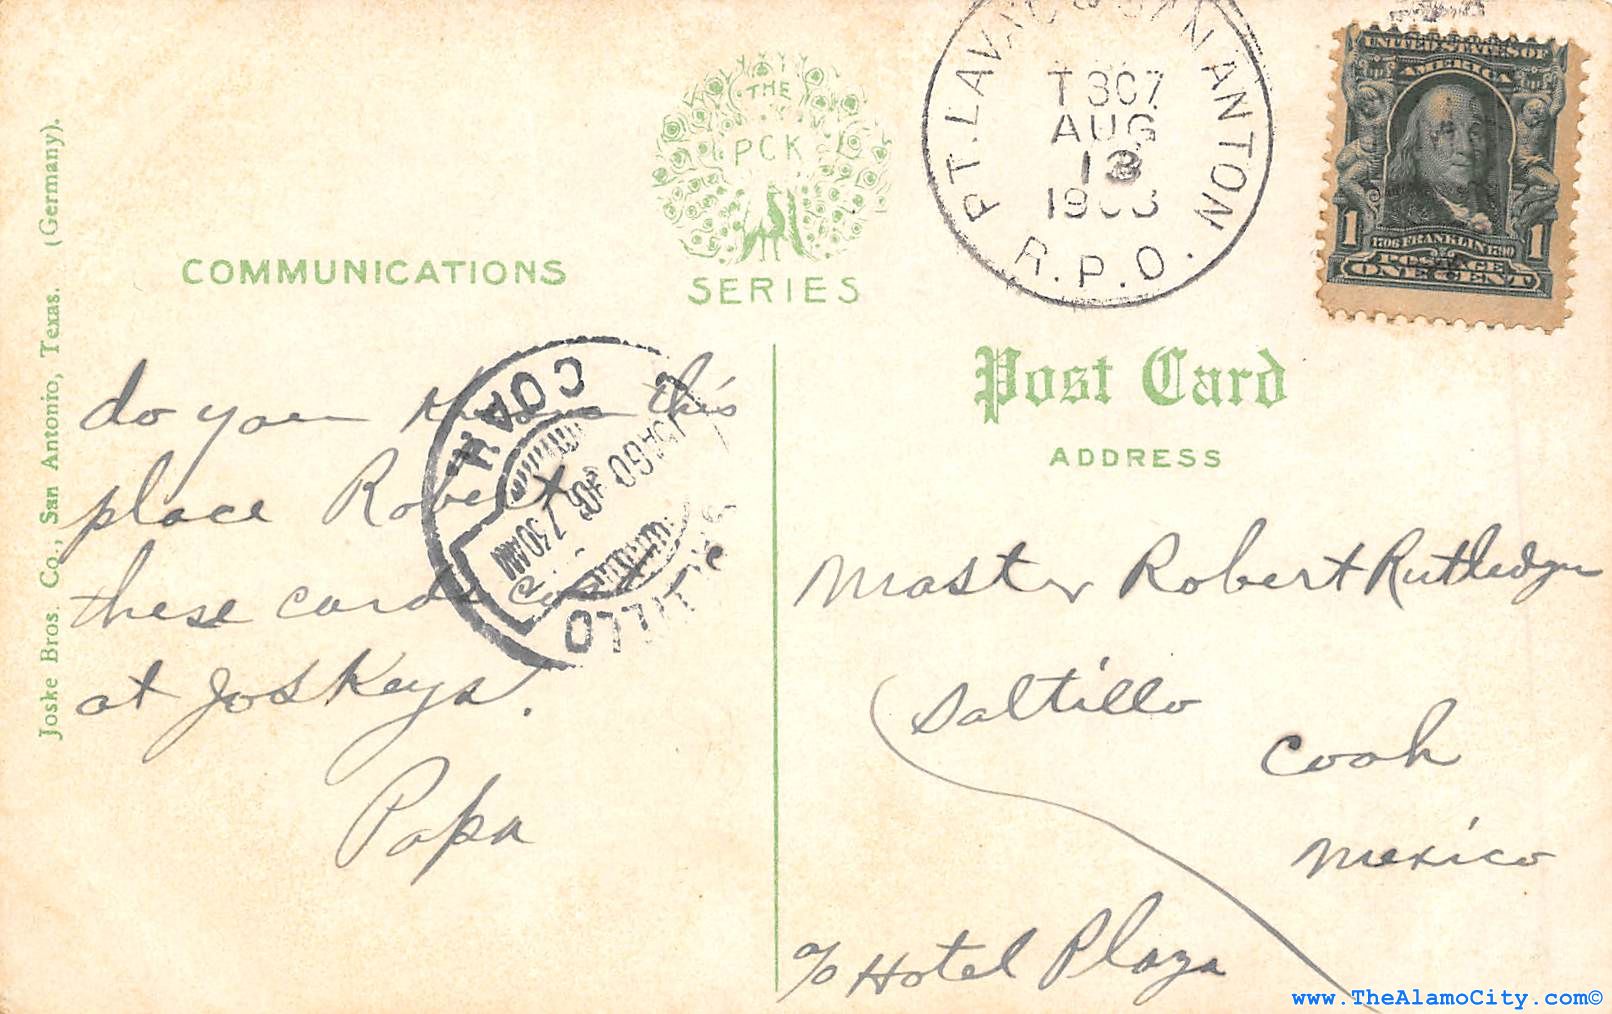 Joske Bros. Co., San Antonio, Texas. (Germany).
THE
PCK
SERIES
COMMUNICATIONS
PT. LAVACA & SAN ANTON
T 307
AUG
13
R.P.O.
UNITED STATES OF
AMERICA
1 1706 FRANKLIN 1790 1
POSTAGE
ONE CENT
Post Card
ADDRESS
do you know this
place Robert
these cards
at Joskeys.
Papa
COAH.
7 30 AM
SALTILLO
Master Robert Rutledge
Saltillo
Coah
Mexico
c/o Hotel Plaza
www.TheAlamoCity.com©